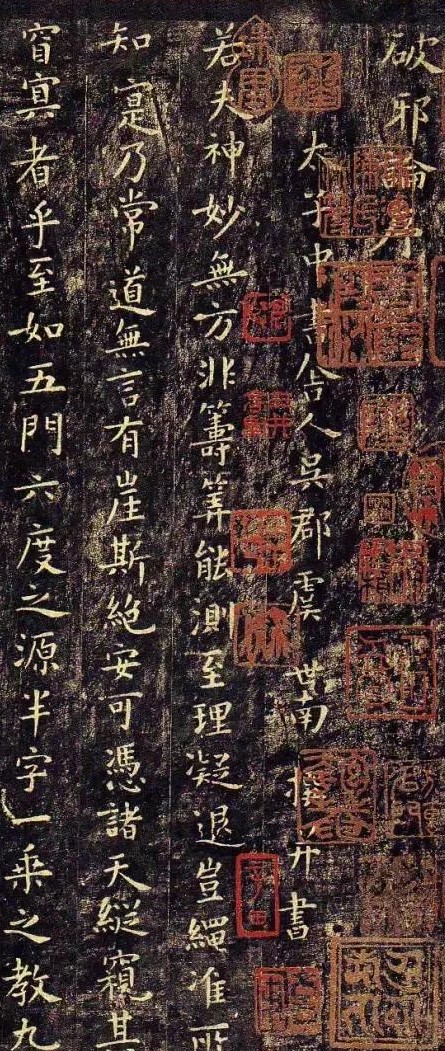 破邪論序
太子中書舍人吳郡虞世南撰并書
若夫神妙無方非籌筭能測至理凝退豈繩准所
知寔乃常道無言有崖斯絕安可憑諸天縱窺其
窅冥者乎至如五門六度之源半字一乘之教九